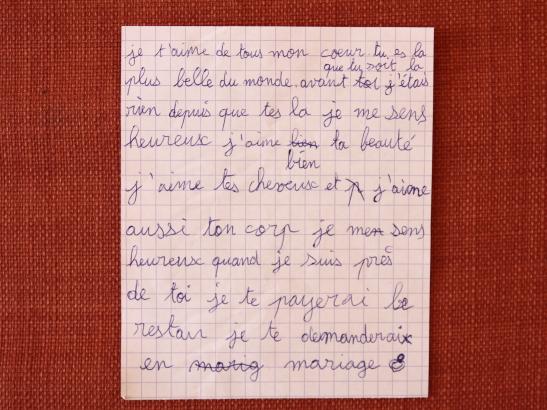 je t'aime de tous mon coeur tu es la
plus belle du monde avant que tu soit la toi j'étais
rien depuis que tes la je me sens
heureux j'aime bien ta beauté
bien
j'aime tes cheveux et j'aime
aussi ton corp je me sens
heureux quand je suis près
de toi je te payerai le
restau je te demanderai
en marig mariage